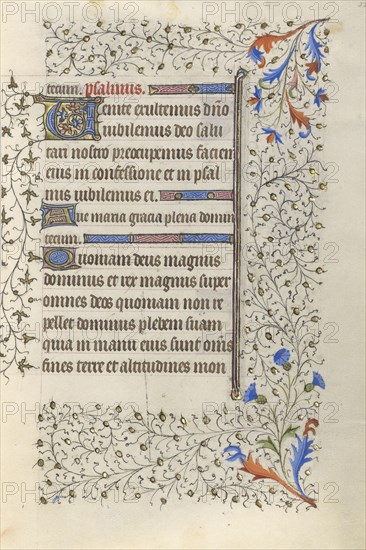 tecum. psalmus.
Venite exultemus dño
iubilemus deo salu
tari nostro preocupemus faciem
eius in confessione et in psal
mis iubilemus ei.
Aue maria gracia plena domin
tecum.
Quoniam deus magnus
dominus et rex magnus super
omnes deos quoniam non re
pellet dominus plebem suam
quia in manu eius sunt oms
fines terre et altitudines mon